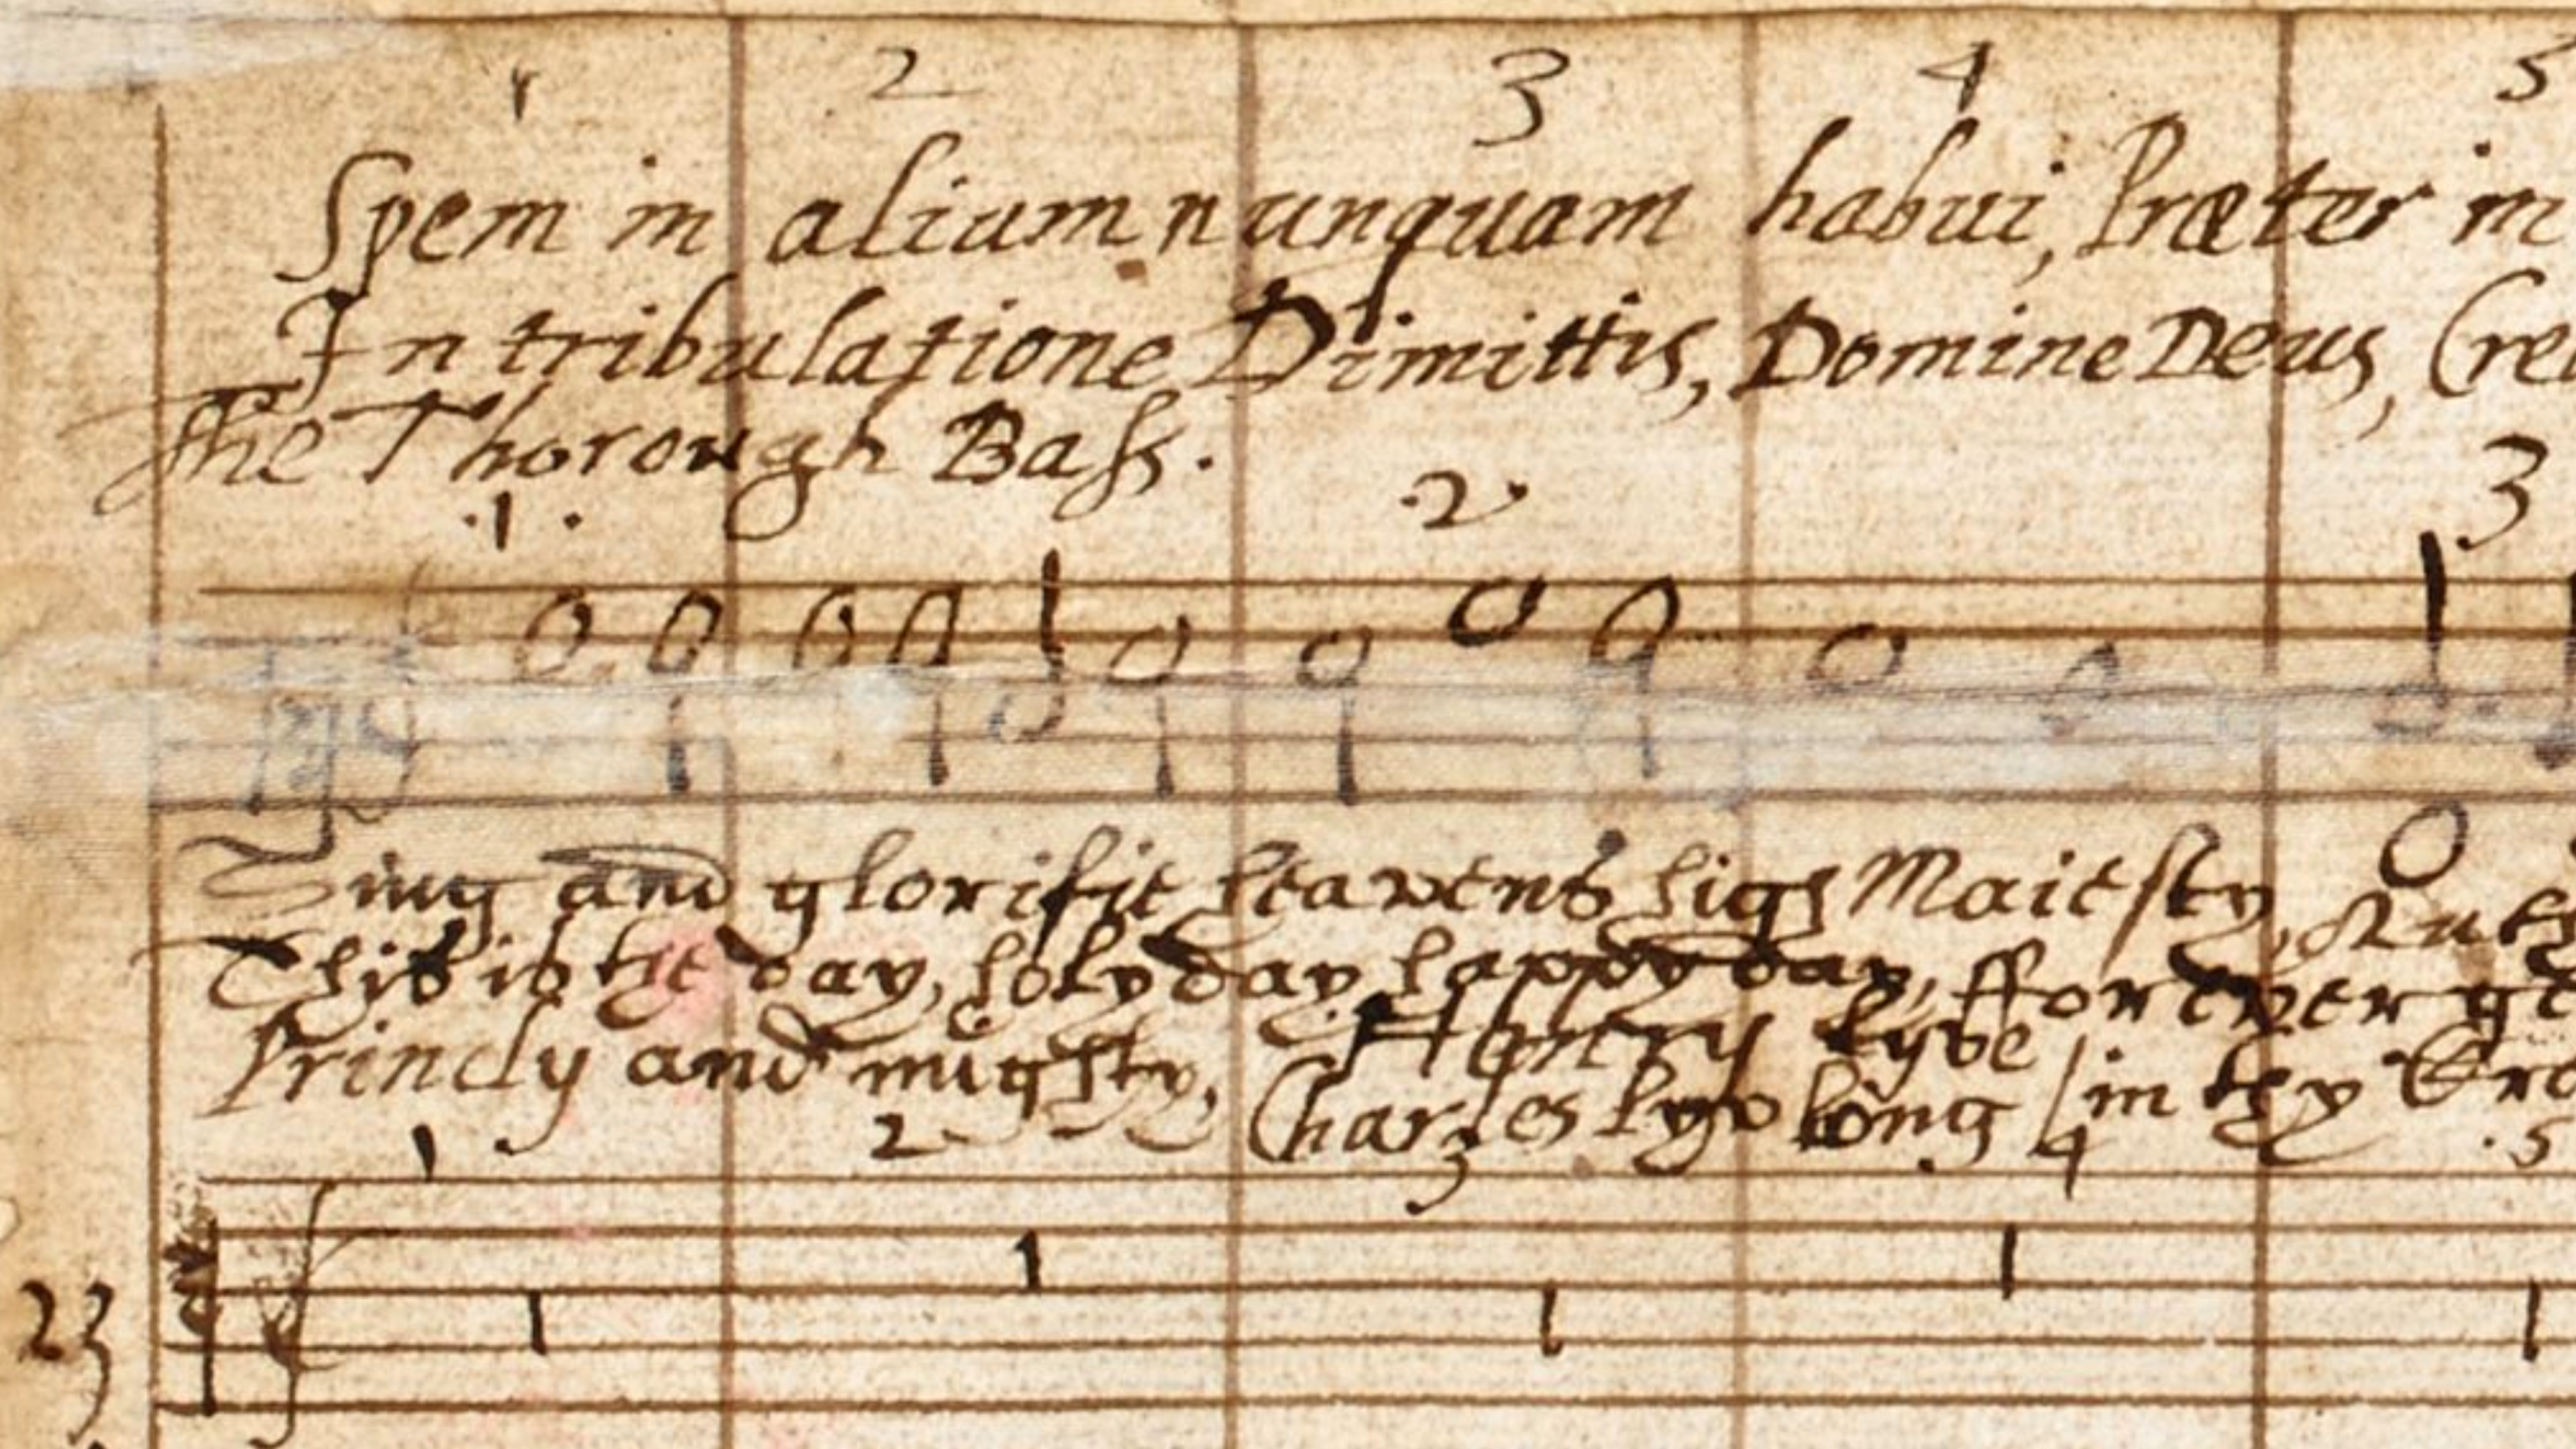 1 2 3 4 5
Spem in alium nunquam habui, Præter in
In tribulatione Dimittis, Domine Deus, Cre
The Thorough Bass.
.1. .2. 3
Sing and glorifie heavens high Maiesty, Auth
This is the day, holy day, happy day, ffor ever gr
Henry lyve
Princly and mighty, Charles lyve long in thy Cre
1 2 3 4 .5
23